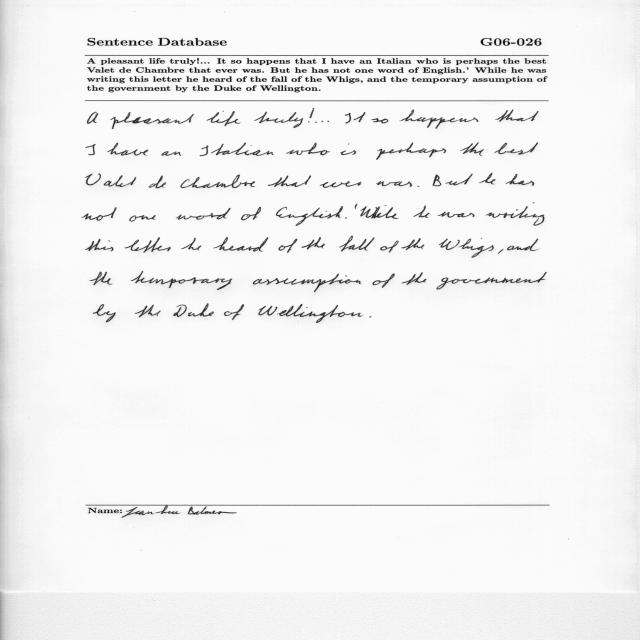 Sentence Database G06-026
A pleasant life truly!... It so happens that I have an Italian who is perhaps the best
Valet de Chambre that ever was. But he has not one word of English.' While he was
writing this letter he heard of the fall of the Whigs, and the temporary assumption of
the government by the Duke of Wellington.
A pleasant life truly!... It so happens that
I have an Italian who is perhaps the best
Valet de Chambre that ever was. But he has
not one word of English.' While he was writing
this letter he heard of the fall of the Whigs, and
the temporary assumption of the government
by the Duke of Wellington.
Name: